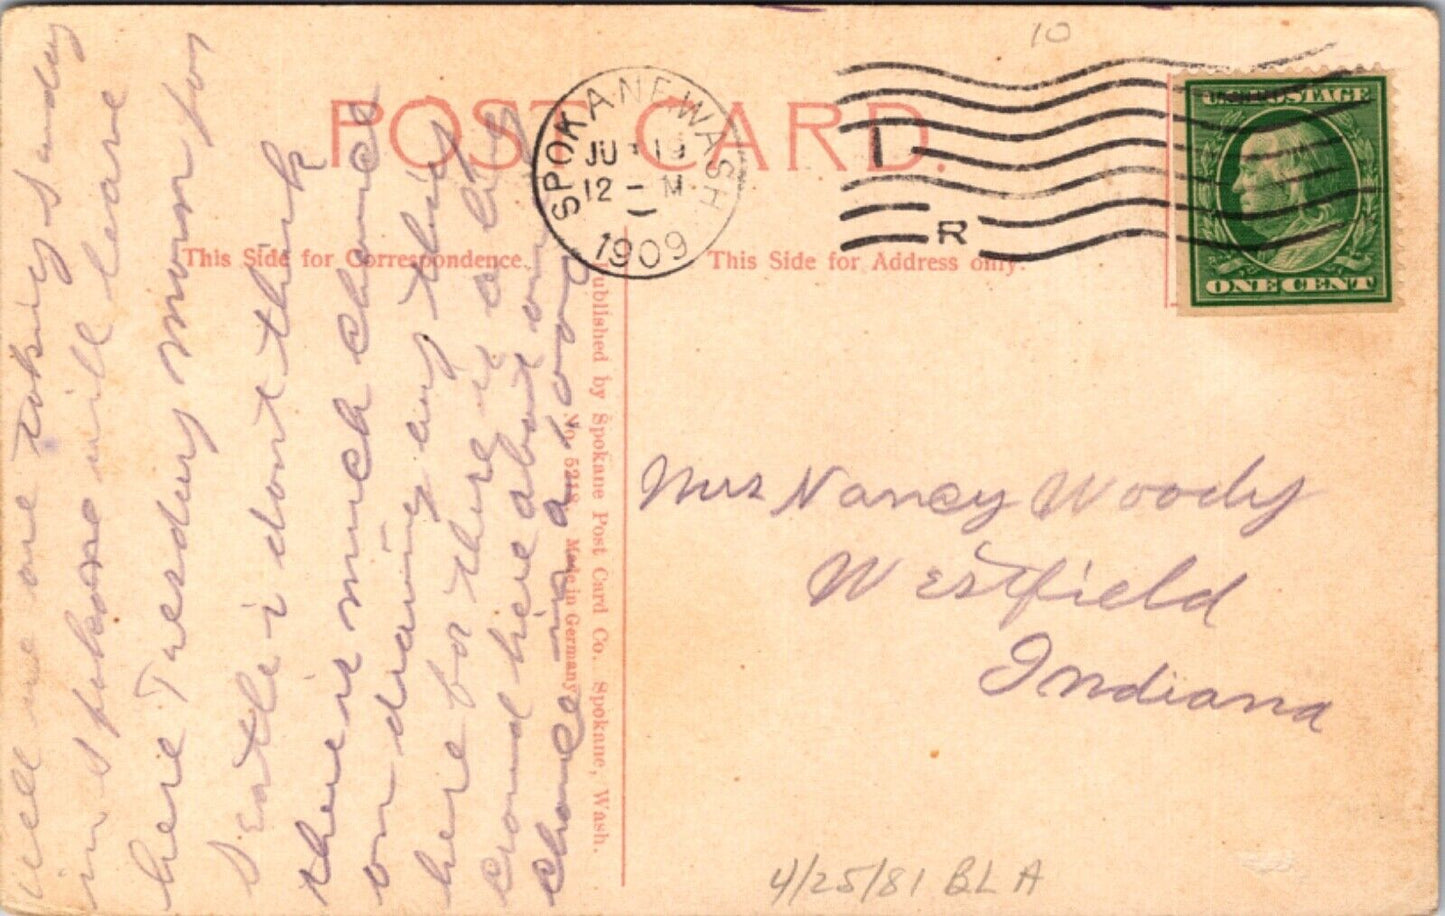 10
POST CARD.
SPOKANE, WASH
JU 19
12 - M
1909
I
R
U.S. POSTAGE
ONE CENT
This Side for Correspondence.
This Side for Address only.
well we are taking Sunday
in Spokane will leave
here Tuesday morn for
Seatle i dont think
there is much chance
on drawing any thing
here for there is a big
crowd here about one
chance in a
ublished by Spokane Post Card Co. Spokane, Wash.
No. 5218 Made in Germany
Mrs Nancy Woody
Westfield
Indiana
4/25/81 BLA